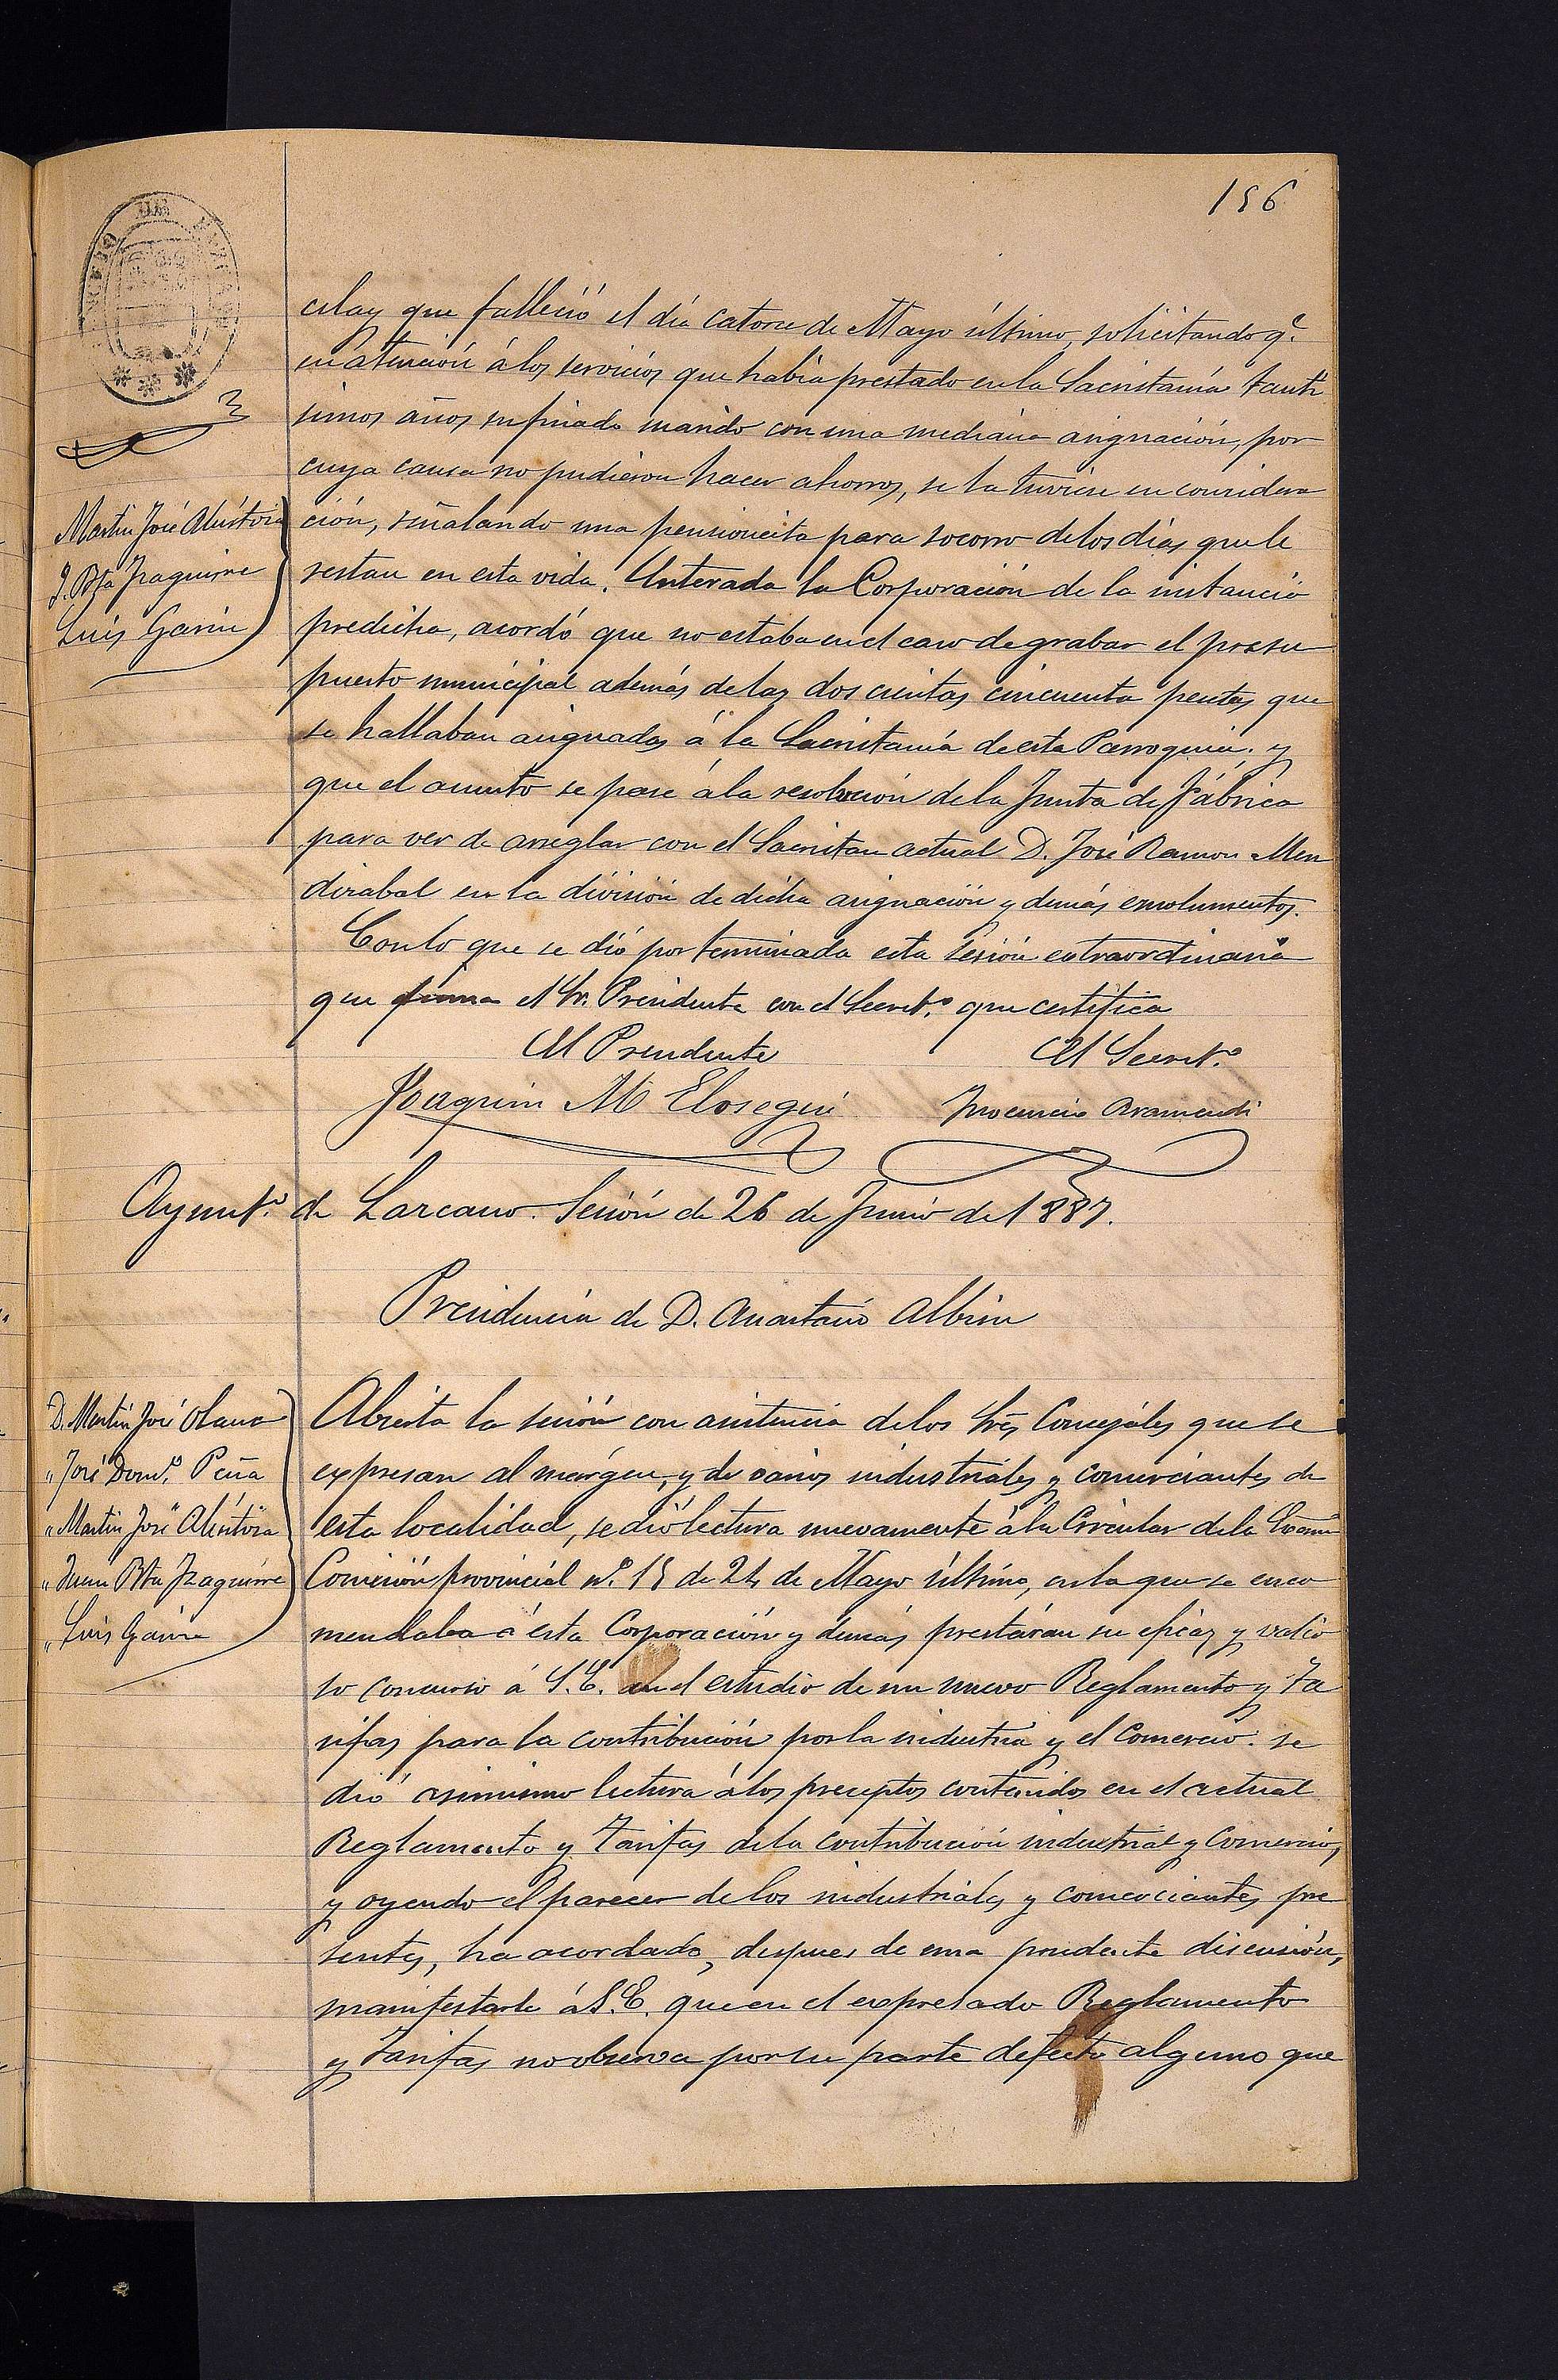 156
celay que falleció el día catorce de Mayo último, solicitando q.e
en atención á los servicios que había prestado en la Sacristanía tantí
simos años su finado marido con una mediana asignación, por
cuya causa no pudieron hacer ahorros, se la tuviese en considera
ción, señalando una pensioncita para socorro de los días que le
restan en esta vida. Enterada la Corporación de la instancia
predicha, acordó que no estaba en el caso de grabar el presu
puesto municipal además de las dos cientas cincuenta pesetas que
se hallaban asignadas á la Sacristanía de esta Parroquia; y
que el asunto se pase á la resolución de la Junta de Fábrica
para ver de arreglar con el Sacristan actual D. José Ramon Men
dizabal en la división de dicha asignación y demás emolumentos.
Con lo que se dió por terminada esta sesión extraordinaria
que firma el Sr. Presidente con el Secret.o que certifica
El Presidente El Secret.o
Joaquin M Elosegui Inocencio Aramendi
Martin José Aluistiza
J. Bta Izaguirre
Luis Garin
Ayunt.o de Lazcano. Sesión de 26 de Junio de 1887.
Presidencia de D. Anastasio Albisu
D. Martin José Olano
" José Dom.o Peña
" Martin José Alustiza
" Juan Bta Izaguirre
" Luis Garin
Abierta la sesión con asistencia de los Sres Concejales que se
expresan al márgen, y de varios industriales y comerciantes de
esta localidad, se dió lectura nuevamente á la Circular de la Excma
Comisión provincial n.o 15 de 24 de Mayo último, en la que se enco
mendaba á esta Corporación y demás prestáran su eficaz y valio
so concurso á S.E. en el estudio de un nuevo Reglamento y Ta
rifas para la contribución por la industria y el Comercio. se
dió asimismo lectura á los preceptos contenidos en el actual
Reglamento y Tarifas de la contribución industrial y Comercio,
y oyendo el parecer de los industriales y comerciantes pre
sentes, ha acordado, despues de una prudente discusión,
manifestarle á S.E. que en el expresado Reglamento
y Tarifas no observa por su parte defecto alguno que